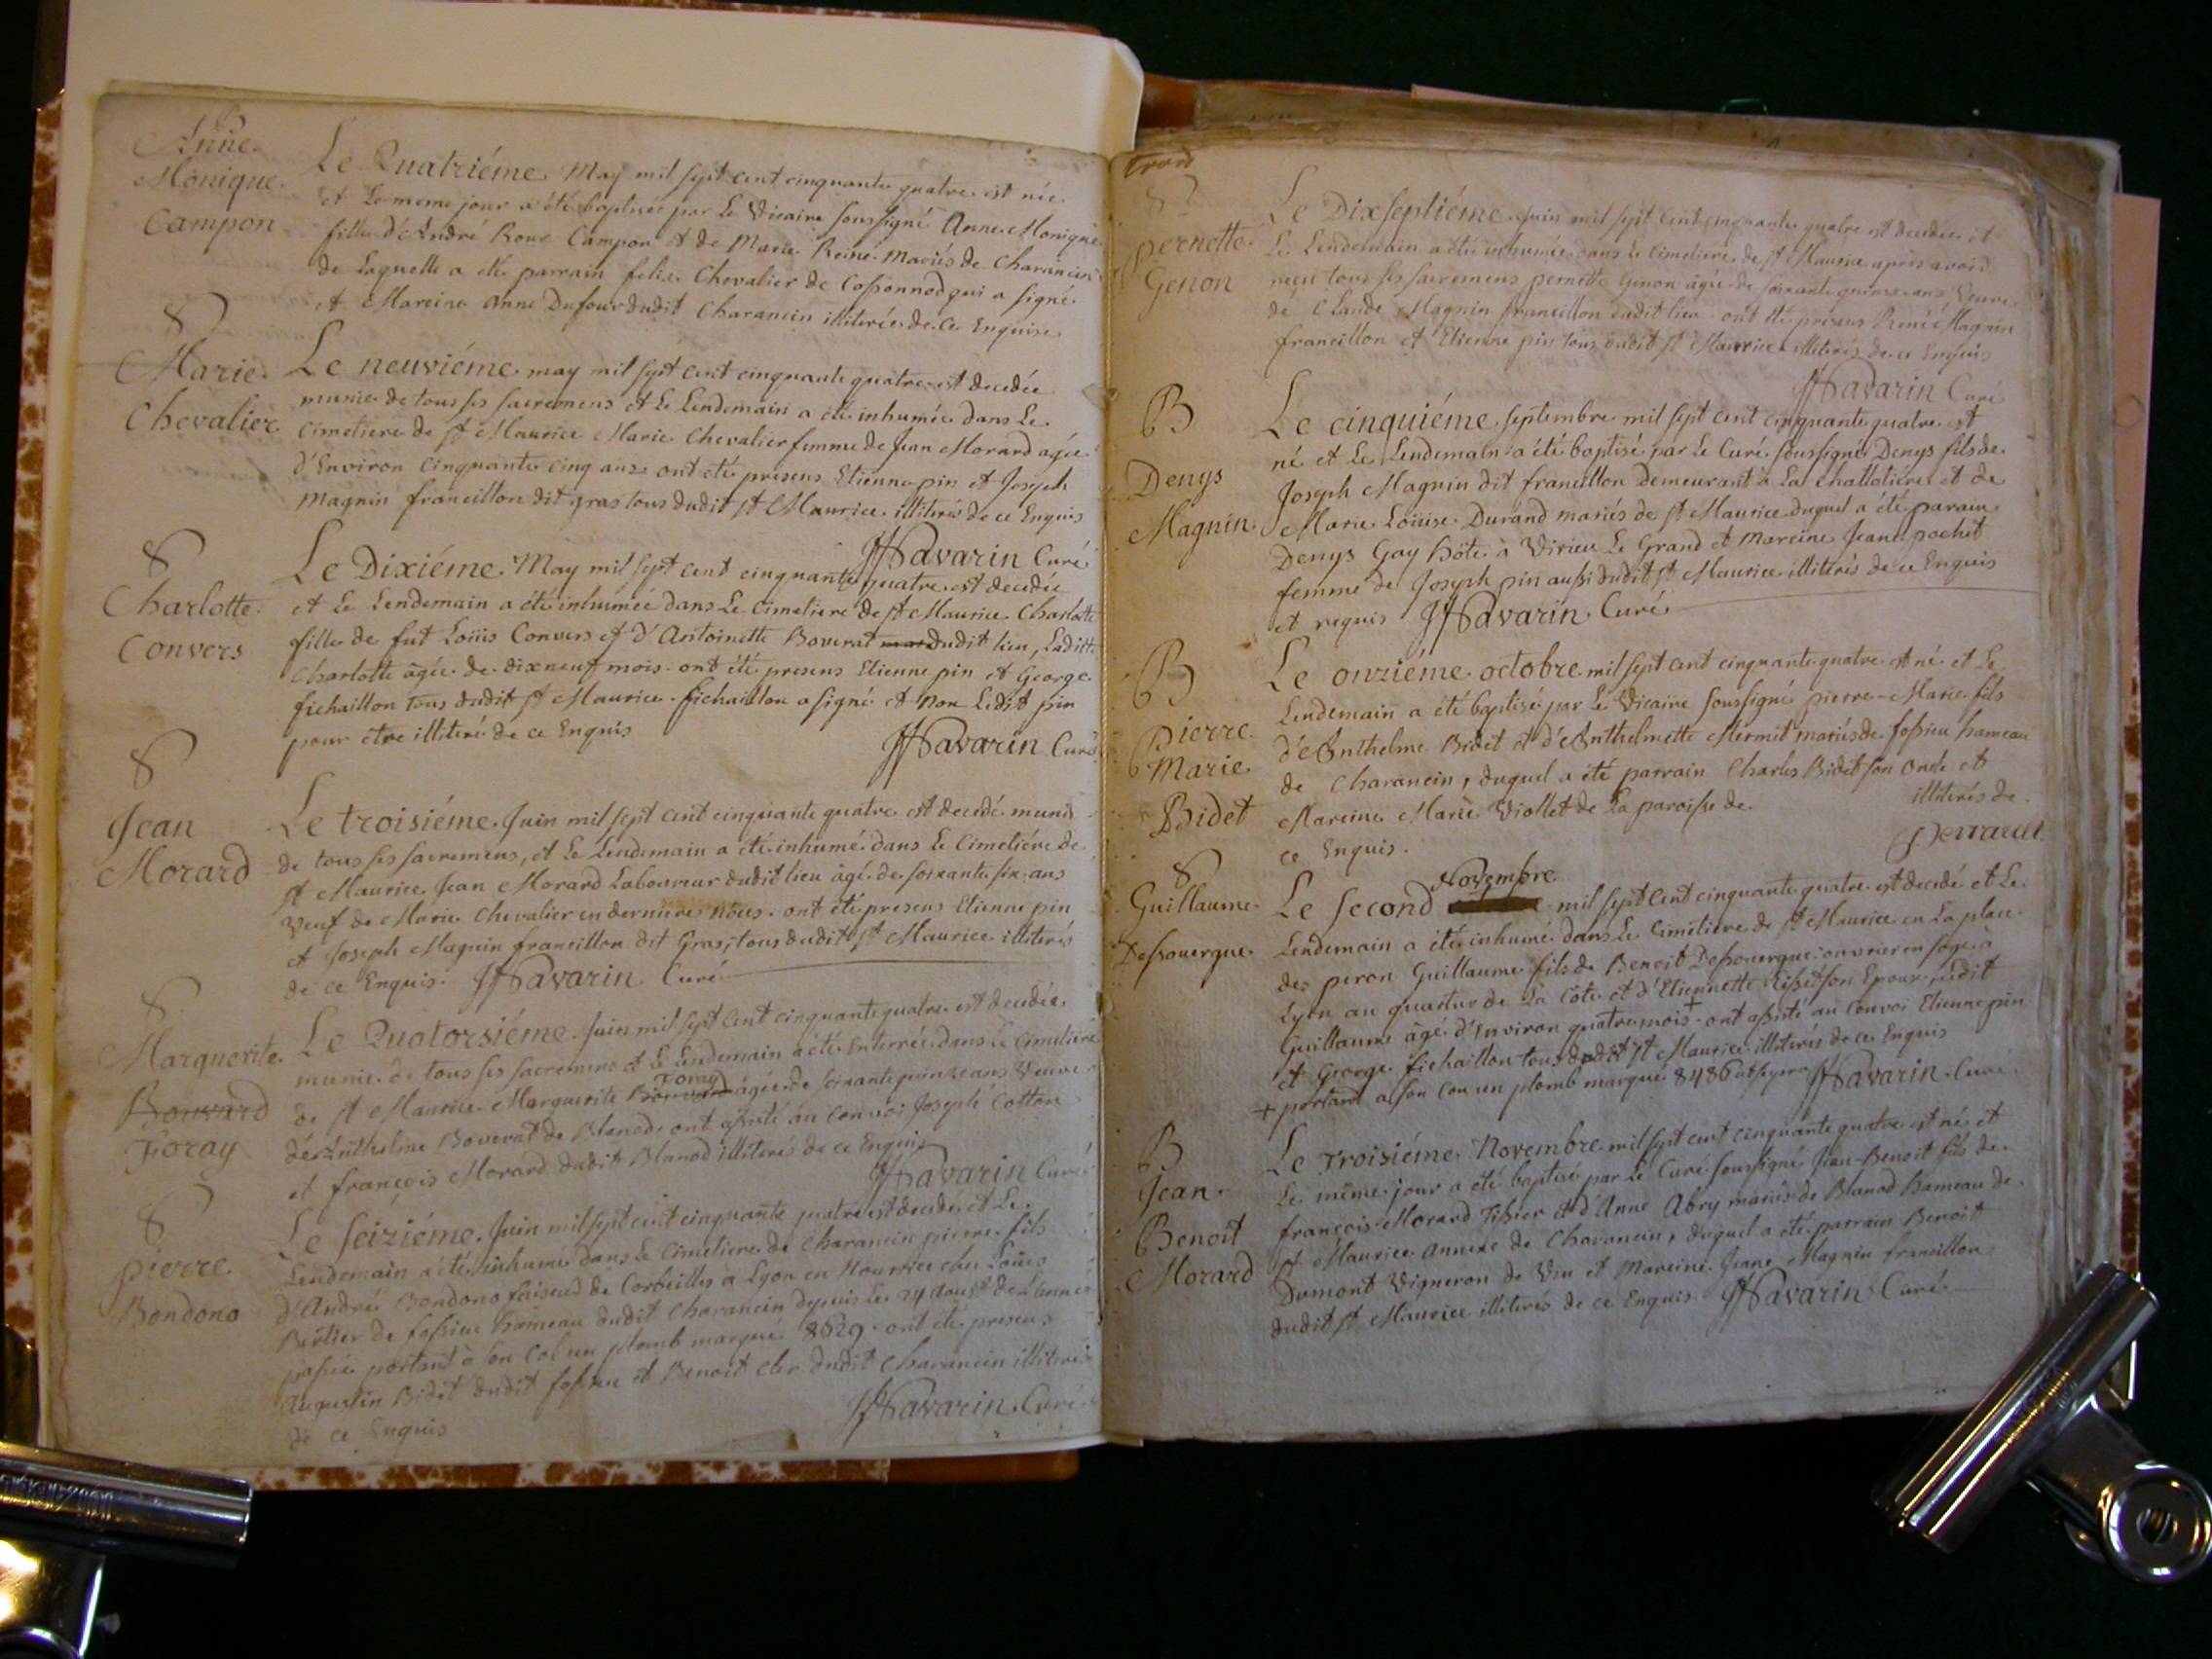 B
Anne
Monique
Campon
Le Quatriéme May mil sept cent cinquante quatre est née
et Le meme jour a été baptisée par Le Vicaire soussigné Anne Monique
fille d'André Roux Campon et de Marie Reine mariés de Charancin
de Laquelle a été parrain felix Chevalier de Coponnod qui a signé
et Mareine Anne Dufour dudit Charancin illiterée de ce Enquise
S
Marie
Chevalier
Le neuviéme may mil sept cent cinquante quatre est decedée
munie de tous ses sacremens et Le Lendemain a été inhumée dans Le
Cimetiere de st Maurice Marie Chevalier femme de Jean Morard agée
d'Environ cinquante cinq ans ont été presens Etienne pin et Joseph
Magnin francillon dit gras tous dudit st Maurice illiterés de ce Enquis
Savarin Curé
S
Charlotte
Convers
Le Dixiéme May mil sept cent cinquante quatre est decedée
et Le Lendemain a été inhumée dans Le Cimetiere de st Maurice Charlotte
fille de fut Loüis Convers et d'Antoinette Boverat dudit lieu, Ladite
Charlotte agée de dixneuf mois ont été presens Etienne pin et George
fichaillon tous dudit st Maurice. fichaillon a signé et non Ledit pin
pour etre illiteré de ce Enquis
Savarin Curé
S
Jean
Morard
Le troisiéme Juin mil sept cent cinquante quatre est decedé muni
de tous ses sacremens, et Le Lendemain a été inhumé dans Le Cimetiére de
st Maurice Jean Morard Laboureur dudit lieu âgé de soixante six ans
veuf de Marie Chevalier en dernieres nôces. ont été presens Etienne pin
et Joseph Magnin francillon dit Gras, tous dudit st Maurice illiterés
de ce Enquis. Savarin Curé
S
Marguerite
Bouvard
Foray
Le Quatorsiéme Juin mil sept cent cinquante quatre est decedée
munie de tous ses sacremens et Le Lendemain a été Enterrée dans Le Cimetiére
Foray
de st Maurice Marguerite Bouvard âgée de soixante quinze ans Veuve
d'Anthelme Boverat de Blanod ont assisté au Convoi Joseph Cotton
et françois Morard dudit Blanod illiterés de ce Enquis
Savarin Curé
S
pierre
Bondono
Le seiziéme Juin mil sept cent cinquante quatre est decedé et Le
Lendemain a été inhumé dans Le Cimetiere de Charancin pierre fils
d'André Bondono faiseur de Corbeilles a Lyon en Nourrice chez Loüis
Bertier de fossieu hameau dudit Charancin depuis Le 24 Aoust de L'année
passée portant à son Col un plomb marqué 8629. ont été presens
Augustin Bidet dudit fossieu et Benoit cler dudit Charancin illiterés
de ce Enquis
Savarin Curé
S
pernette
Genon
Le Dixseptiéme Juin mil sept cent cinquante quatre est decedée et
Le Lendemain a été inhumée dans Le Cimetiere de st Maurice apres avoir
reçu tous ses sacremens pernette Genon agée de soixante quinze ans Veuve
de Claude Magnin francillon dudit lieu. ont été presens René Magnin
francillon et Etienne pin tous dudit st Maurice illiterés de ce Enquis
Savarin Curé
B
Denys
Magnin
Le cinquiéme septembre mil sept cent cinquante quatre est
né et Le Lendemain a été baptisé par Le Curé soussigné Denys fils de
Joseph Magnin dit francillon demeurant à La Challotiere et de
Marie Loüise Durand mariés de st Maurice duquel a été parain
Denys Gay hôte à Virieu Le Grand et Mareine Jeane pochet
femme de Joseph pin aussi dudit st Maurice illiterés de ce Enquis
et requis Savarin Curé
B
Pierre
Marie
Bidet
Le onziéme octobre mil sept cent cinquante quatre est né et Le
Lendemain a été baptisé par Le Vicaire soussigné pierre-Marie fils
d'Anthelme Bidet et d'Anthelmette Mermet mariés de fossieu hameau
de Charancin, duquel a été parrain Charles Bidet son Oncle et
Mareine Marie Viollet de La paroisse de illiterés de
ce Enquis.
Perrault
S
Guillaume
Dessouergue
Novembre
Le second mil sept cent cinquante quatre est decedé et Le
Lendemain a été inhumé dans Le Cimetiere de st Maurice en La place
des peron Guillaume fils de Benoit Dessouergue ouvrier en soye à
Lyon au quartier de La Côte et d'Etiennette son Epouse, Ledit
Guillaume âgé d'Environ quatre mois + ont assisté au Convoi Etienne pin
et George fichaillon tous dudit st Maurice illiterés de ce Enquis
+ portant a son Cou un plomb marqué 8486 Savarin Curé
B
Jean
Benoit
Morard
Le Troisiéme Novembre mil sept cent cinquante quatre est né et
Le même jour a été baptisé par Le Curé soussigné Jean-Benoit fils de
françois Morard Tissier et d'Anne Abry mariés de Blanod hameau de
st Maurice annexe de Charancin, duquel a été parrain Benoit
Dumont Vigneron de Vuu et Mareine Jeane Magnin francillon
dudit st Maurice illiterés de ce Enquis. Savarin Curé